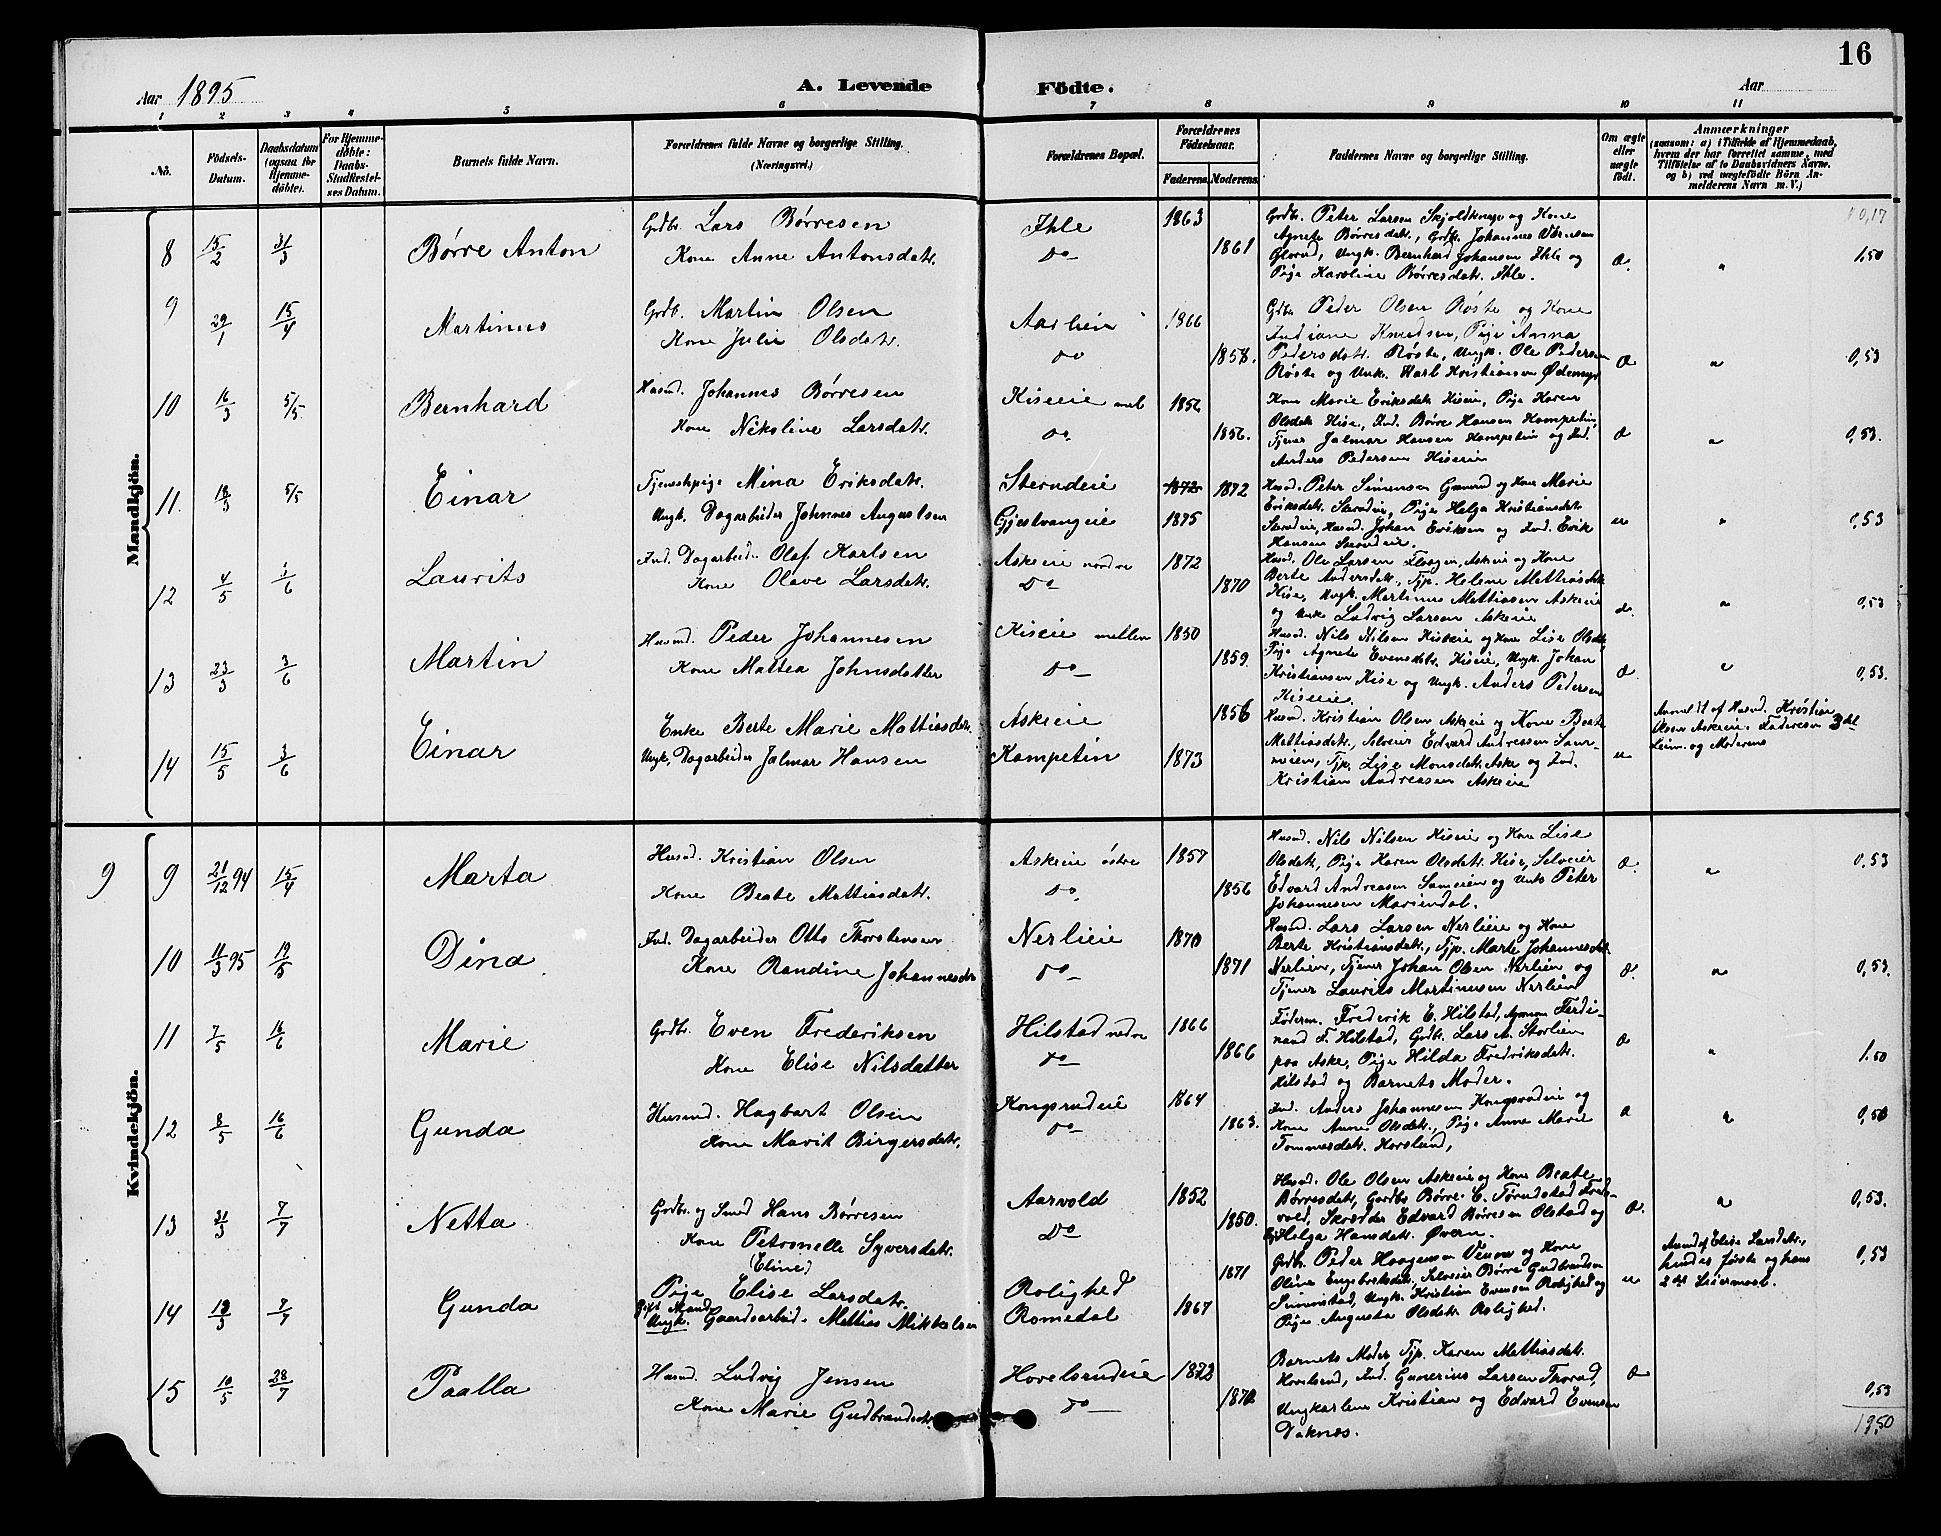 16
Aar 1895
A. Levende Födte.
Aar
1 2 3 4 5 6 7 8 9 10 11
No.
Födsels-Datum.
Daabsdatum (ogsaa for Hjemmedöbte).
For Hjemmedöbte: Daabs-Stadfestelses Datum.
Barnets fulde Navn.
Forældrenes fulde Navne og borgerlige Stilling. (Næringsvei.)
Forældrenes Bopæl.
Forældrenes Födselsaar.
Faderens. Moderens.
Faddernes Navne og borgerlige Stilling.
Om ægte eller uægte födt.
Anmærkninger
(saasom: a) i Tilfælde af Hjemmedaab, hvem der har forrettet samme, med Tilföielse af to Daabsvidners Navne, og b) ved uægtefödte Börn Anmelderens Navn m. V.)
Mandkjön.
8 15/2 31/3 Børre Anton
Grdbr. Lars Børresen
Kone Anne Antonsdatr.
Ihle
Do
1863
1861
Grdbr. Peter Larsen Skjoldknap og Kone
Agnete Børresdatr., Grdbr. Johannes
Glorud, Ungk. Bernhard Johansen Ihle og
Pige Karoline Børresdatr. Ihle.
1,50
9 29/1 15/4 Martinus
Grdb. Martin Olsen
Kone Julie Olsdatr.
Aarlien
Do
1866
1858.
Gdbr Peder Olsen Røste og Kone
Andiane Knudsen, Pige Anna
Pedersdatr. Røste, Ungk. Ole Pedersen
Røste og Unk. Karl Kristiansen Ødemyr
0,53
10 16/3 5/5 Bernhard
Husmd. Johannes Børresen
Kone Nikoline Larsdatr.
Kiseie mel
Do
1856
1856.
Kone Marie Eriksdatr Kiseie, Pige Karen
Olsdatr Kise, Ind. Børre Hansen Kampetin,
Tjener Jalmar Hansen Kampetin og Ind.
Anders Pedersen Kiseie
0,53.
11. 18/3 5/5 Einar
Tjenestepige Mina Eriksdatr.
Ungk. Dagarbeider Johannes Augustsen
Sterudeie
Gjestvangeie
1872 1872
1875
Husmd. Peter Simensen Grønrud og Kone Marie
Eriksdatr. Sterudeie, Pige Helga Kristiansdatr
Sterudeie, Husmd. Johan Eriksen og Ind. Erik
Hansen Sterudeie.
0,53
12 4/5 3/6 Laurits
Ind. Dagarbeid. Olaf Karlsen
Kone Olave Larsdatr.
Askeie nordre
Do
1872
1870
Husmd. Ole Larsen Flaagen, Askeie og Kone
Berte Andersdatr., Tjp. Helene Mattiasdatr
Kise, Ungk. Martinus Mattiasen Askeie
og Unk Ludvig Larsen Askeie
0,53
13 23/3 3/6 Martin
Husmd. Peder Johannesen
Kone Mattea Johnsdatter
Kiseie mellem
Do
1850
1859.
Husmd. Nils Nilsen Kiseie og Kone Lise Olsdatr,
Pige Agnete Evensdatr. Kiseie, Ungk. Johan
Kristiansen Kise og Ungk. Anders Pedersen
Kiseie.
0,53.
14 15/5 3/6 Einar
Enke Berte Marie Mattiasdatr.
Ungk. Dagarbeider Jalmar Hansen
Askeie
Kampetin
1856
1873
Husmd. Kristian Olsen Askeie og Kone Beate
Mattiasdatr., Selveier Edvard Andreasen
Tjp. Lise Monsdatr. Aske og Ind.
Kristian Andreasen Askeie
Anmeldt af Husmd. Kristian
Olsen Askeie. Faderens 3die
Leierm. og Moderens
Kvindekjön.
9
9 21/12 94 15/4 Marta
Husmd. Kristian Olsen
Kone Beate Mattiasdatr.
Askeie östre
Do
1857
1856
Husmd. Nils Nilsen Kiseie og Kone Lise
Olsdatr., Pige Karen Olsdatr. Kise, Selveier
Edvard Andreasen og Unk Peter
Johannesen Mariendal.
0,53
10 11/3 95 19/5 Dina
Ind. Dagarbeider Otto Thorstensen
Kone Randine Johannesdtr
Nerlieie
Do
1870
1871
Husmd. Lars Larsen Nerlieie og Kone
Berte Kristiansdatr., Tjp. Marte Johannesdatr.
Nerlien, Tjener Johan Olsen Nerlien og
Tjener Laurits Martinusen Nerlien
0,53.
11 7/5 16/6 Marie
Grdbr. Even Frederiksen
Kone Elise Nilsdatter
Hilstad nedre
Do
1866
1866
Føderm. Frederik E. Hilstad, Ferdinand
F. Hilstad, Grdbr. Lars A. Storlien
paa Aske, Pige Hilda Fredriksdatr.
Hilstad og Barnets Moder.
1.50
12 8/5 16/6 Gunda
Husmd. Hagbart Olsen
Kone Marit Birgersdatr.
Kongsrudeie
Do
1864
1863.
Ind. Anders Johannesen Kongsrudeie og
Kone Anne Olsdatr., Pige Anne Marie
Tommesdatr. Horslund,
0,50
13 31/3 7/7 Netta
Grdbr. og Smed Hans Børresen
Kone Petronelle Syversdatr.
(Eline)
Aarvold
Do
1852
1850.
Husmd. Ole Olsen Askeie og Kone Beate
Børresdatr, Gardbr. Børre E. Tørudstad
Skrædder Edvard Børresen Olstad og
Pige Helga Hansdatr. Øvern.
0,53.
14 19/3 7/7 Gunda
Pige Elise Larsdatr.
Gift Mand
Ungk. Gaardsarbeid. Mattias Mikkelsen
Rolighed
Romedal
1871
1867
Grdbr. Peder Haagensen Venom og Kone
Oline Engebretsdatr, Selveier Børre Gudbrandsen
Simmstad, Ungk. Kristian Evensen Rolighed og
Pige Augusta Olsdatr. Rolighed.
Anmd af Elise Larsdatr,
hendes første og hans
2det Leiermaal.
0,53
15 10/5 28/7 Paalla
Husmd. Ludvig Jensen
Kone Marie Gudbrandsdtr
Hovelsrudeie
Do
1872
1872
Barnets Moder Tjp. Karen Mattiasdatr.
Hovelsrud, Ind. Gunerius Larsen Thorud,
Ungkarlene Kristian og Edvard Evensen
Daknæs.
0,53
19,50